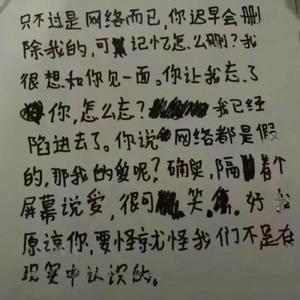 只不过是网络而已，你迟早会删
除我的，可记忆怎么删？我
很想和你见一面。你让我忘了
你，怎么忘？我已经
陷进去了。你说网络都是假
的，那我的爱呢？确实，隔着个
屏幕说爱，很可笑。好我
原谅你，要怪就怪我们不是在
现实中认识的。